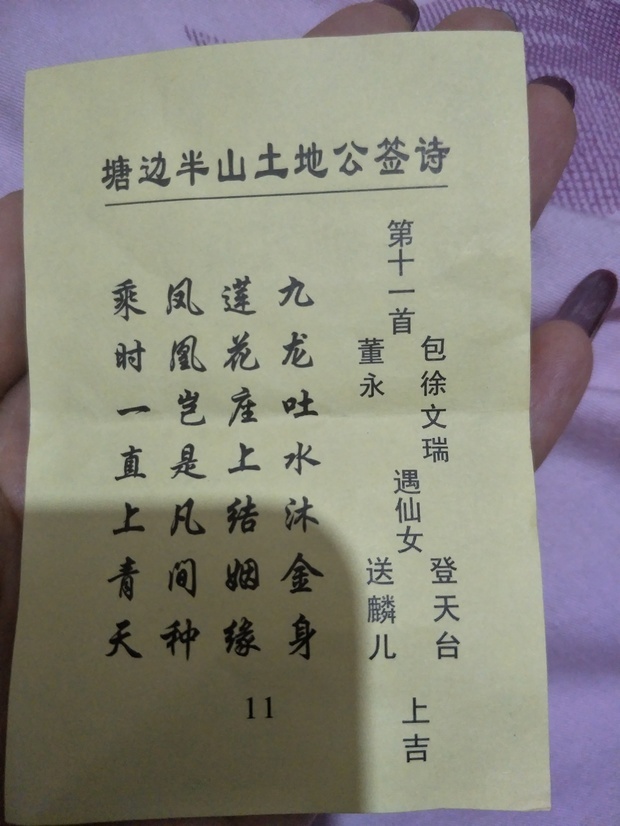 塘边半山土地公签诗
第十一首
包徐文瑞
董永
遇仙女
登天台
送麟儿
上吉
九龙吐水沐金身
莲花座上结姻缘
凤凰岂是凡间种
乘时一直上青天
11